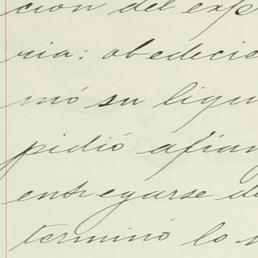 cion del expe
ria: obedecie
mó su liqu
pidió afian
entregarse de
terminó lo